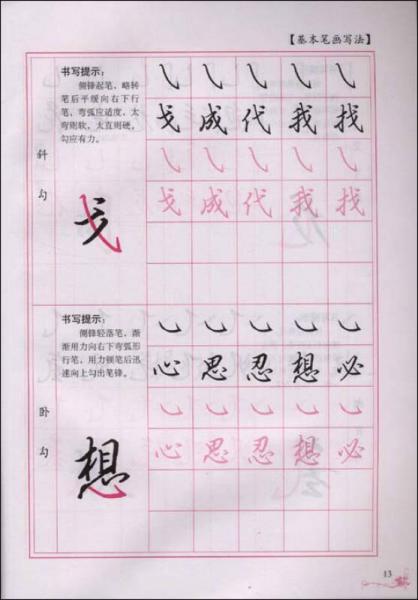 【基本笔画写法】
斜勾
书写提示：
侧锋起笔，略转
笔后平缓向右下行
笔，弯弧应适度，太
弯则软，太直则硬，
勾应有力。
戈
㇂ ㇂ ㇂ ㇂ ㇂
戈 成 代 我 找
㇂ ㇂ ㇂ ㇂ ㇂
戈 成 代 我 找
卧勾
书写提示：
侧锋轻落笔，渐
渐用力向右下弯弧形
行笔，用力顿笔后迅
速向上勾出笔锋。
想
㇃ ㇃ ㇃ ㇃ ㇃
心 思 忍 想 必
㇃ ㇃ ㇃ ㇃ ㇃
心 思 忍 想 必
13